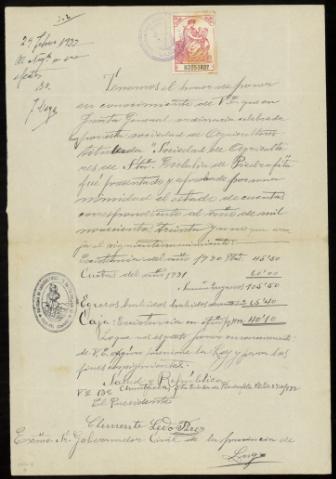 29 Febro 1932
Al Negdo a sus
efectos
Tenemos el honor de poner
en conocimiento de V. E. que en
Junta General ordinaria celebrada
por esta sociedad de Agricultores
titulada "Sociedad de Agriculto
res de Sta. Eulalia de Piedrafita"
fué presentado y aprobado por una
nimidad el estado de cuentas
correspondiente al año de mil
novecientos treinta y uno que arro
ja el siguiente movimiento:
Existencia del año 1930 Ptas 45'50
Cuotas del año 1931 60'00
Suman Ingresos 105'50
Egresos
Caja: Existencia en 40'10
Lo que nos es grato poner en conocimiento
de V. E. según previene la Ley y para los
fines consiguientes.
Salud y República
Vº Bº
El Presidente
Clemente Ledo
Exmo. Sr. Gobernador Civil de la provincia de
Lugo